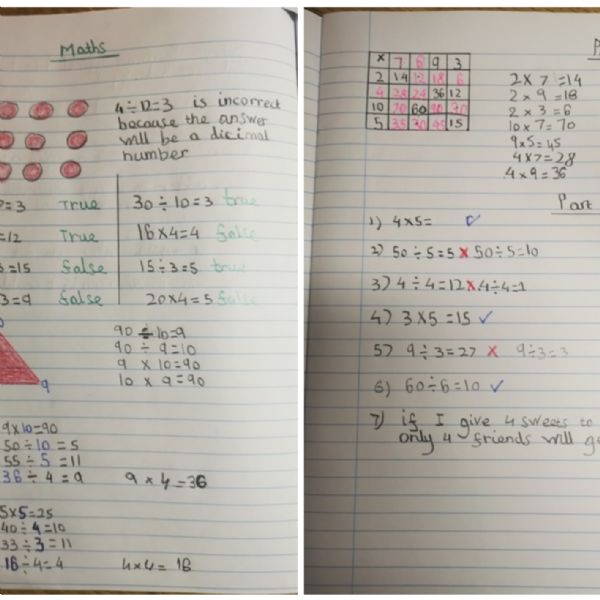 Maths
4÷12=3 is incorrect
because the answer
will be a dicimal
number
=3 True
30÷10=3 true
=12 True
16×4=4 false
=15 false
15÷3=5 true
3=9 false
20×4=5 false
90÷10=9
90÷9=10
9×10=90
10×9=90
9
9×10=90
50÷10=5
55÷5=11
36÷4=9
9×4=36
5×5=25
40÷4=10
33÷3=11
16÷4=4
4×4=16
× 7 6 9 3
2 14 12 18 6
4 28 24 36 12
10 70 60 90 30
5 35 30 45 15
2×7=14
2×9=18
2×3=6
10×7=70
9×5=45
4×7=28
4×9=36
Part
1) 4×5= ✓
2) 50÷5=5 × 50÷5=10
3) 4÷4=12 × 4÷4=1
4) 3×5=15 ✓
5) 9÷3=27 × 9÷3=3
6) 60÷6=10 ✓
7) if I give 4 sweets to
only 4 friends will